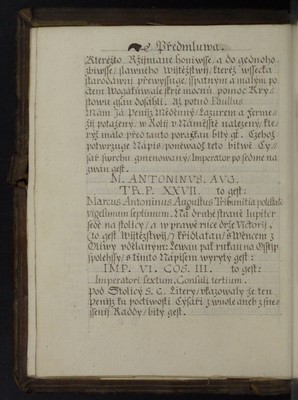 Předmluwa.
Kteréžto Ržijmiané honiwsse, a do gednoho
zbiwsse / slawného Wijtězstwij / kteréž wssecka
starodáwnij přewyssuge / sspatným a malým po
čtem Wogákůw ale skrze mocnú pomoc Kry-
stowu gsau dosáhli. Až potud Paullus
Mám já Penijz Měděnný
žij potažený, w Roli w Náměsstě nalezený / kte-
rýž málo před tauto porážkau bitý gt. Czehož
potwrzuge Nápis, poněwadž teto bitwě Cý-
sař swrchu gmenowaný / Imperator po sedmé na
zwán gest.
M. ANTONINVS. AVG.
TR. P. XXVII. to gest:
Marcus Antoninus Augustus Tribunitia potestate
vigesimum septimum. Na druhé straně Iupiter
sedě na stolicy / a w prawé ruce drže Victorij,
(to gest Wijtězstwij) křidlatau / s Wěncem z
Oliwy vdělaným: Lewau pak rukau na Osstip
s tijmto Nápisem wyrytý gest:
IMP. VI. COS. III. to gest:
Imperatori sextum. Consuli tertium.
Pod Stolicý S. C. Litery / vkazowaly že ten
Penijz ku poctiwosti Cýsaři z wůle aneb z sne-
ssenij Raddy / bitý gest.